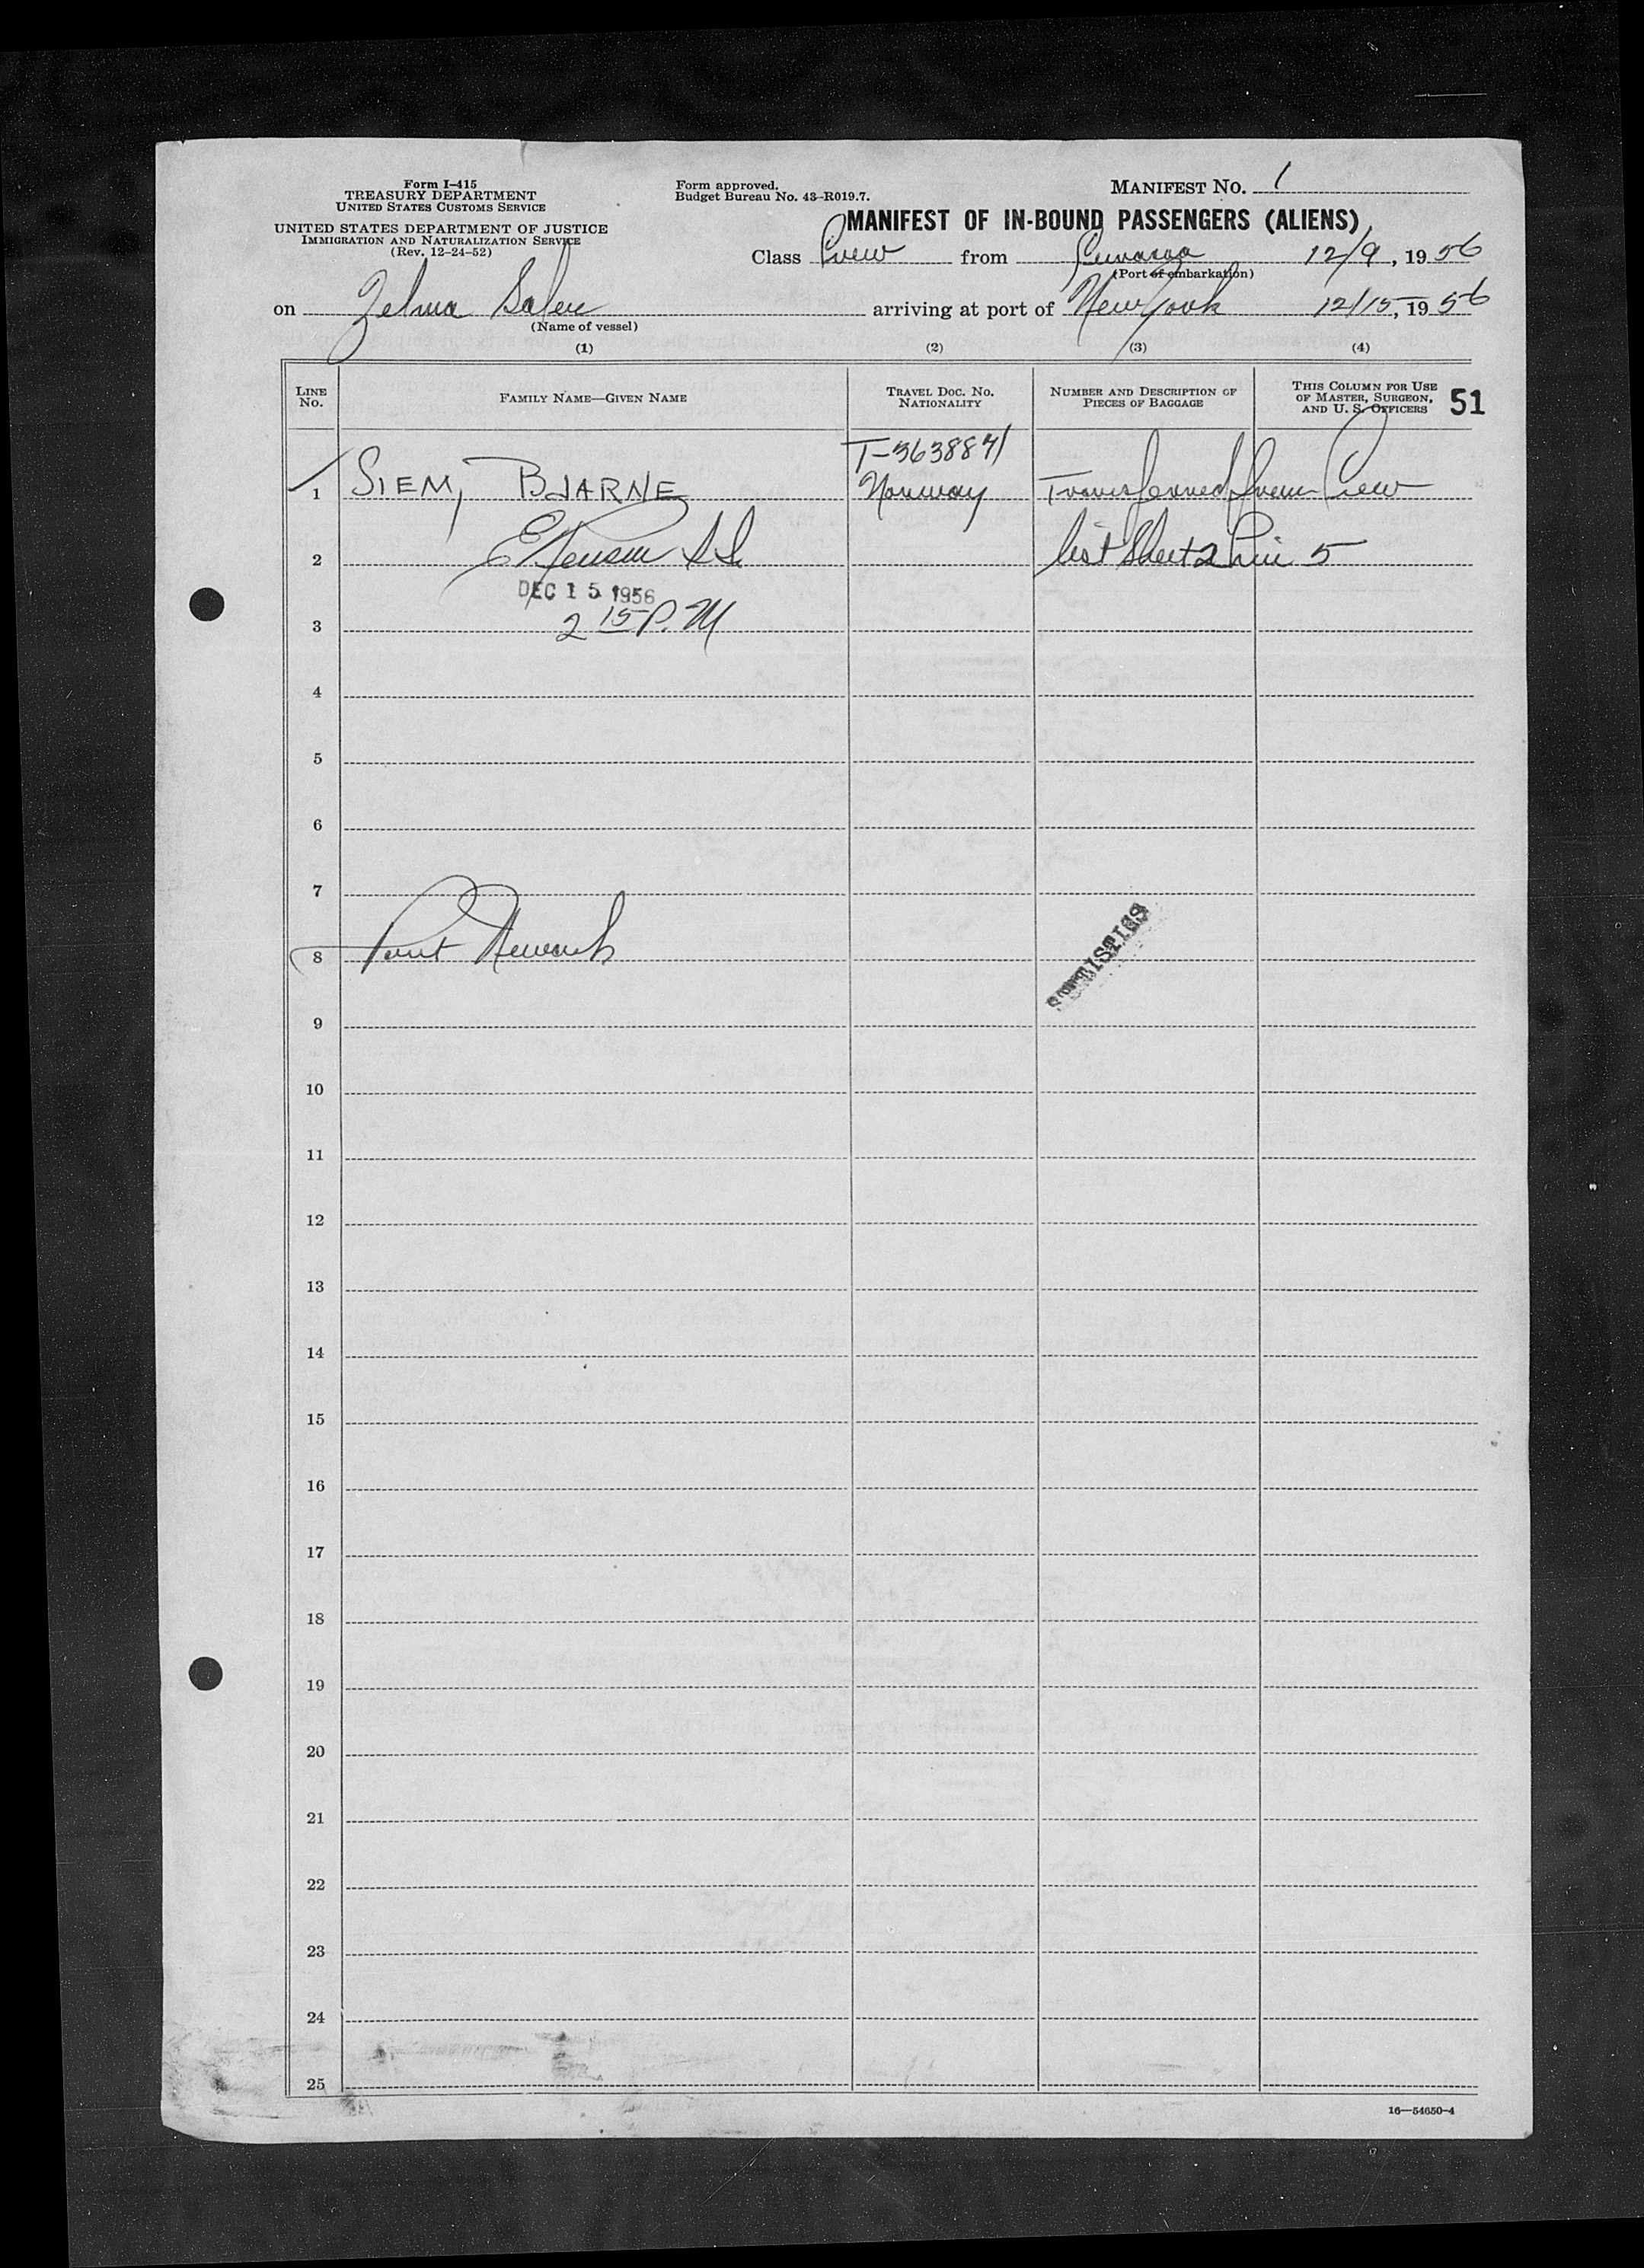 Form I-415
TREASURY DEPARTMENT
UNITED STATES CUSTOMS SERVICE
UNITED STATES DEPARTMENT OF JUSTICE
IMMIGRATION AND NATURALIZATION SERVICE
(Rev. 12-24-52)
Form approved.
Budget Bureau No. 43-R019.7.
MANIFEST NO. 1
MANIFEST OF IN-BOUND PASSENGERS (ALIENS)
Class Crew from Curacao 12/9, 1956
(Port of embarkation)
on Zelma Salen arriving at port of New York 12/15, 1956
(Name of vessel)
(1) (2) (3) (4)
LINE No.
FAMILY NAME—GIVEN NAME
TRAVEL DOC. NO. NATIONALITY
NUMBER AND DESCRIPTION OF PIECES OF BAGGAGE
THIS COLUMN FOR USE OF MASTER, SURGEON, AND U. S. OFFICERS
51
T-3638841
1 SIEM, BJARNE Norway Transferred from Crew
2 list Sheet 2 Line 5
DEC 15 1956
3 2 15 P.M
4
5
6
7
8 Port Newark
STATISTICS
9
10
11
12
13
14
15
16
17
18
19
20
21
22
23
24
25
16—54650-4